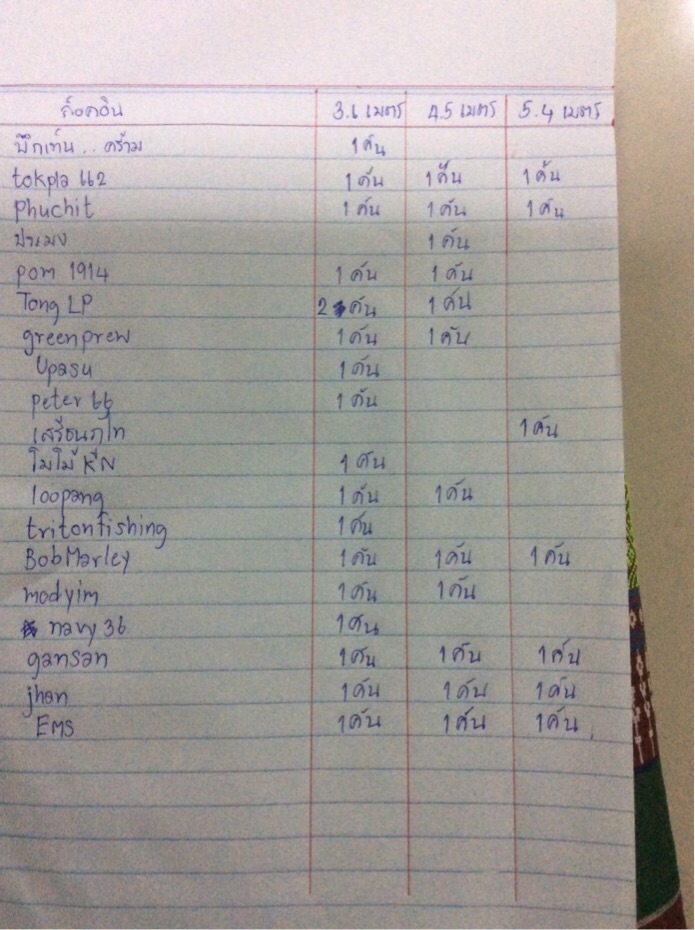 ล็อคอิน 3.6 เมตร 4.5 เมตร 5.4 เมตร
ปึกเท่น.. คร้าม 1 คัน
tokpla 662 1 คัน 1 คัน 1 คัน
Phuchit 1 คัน 1 คัน 1 คัน
ประมง 1 คัน
pom 1914 1 คัน 1 คัน
Tong LP 2 คัน 1 คัน
greenprew 1 คัน 1 คัน
Upasu 1 คัน
peter 66 1 คัน
เสรีชนภูไท 1 คัน
โมโม่ KN 1 คัน
loopang 1 คัน 1 คัน
tritonfishing 1 คัน
BobMarley 1 คัน 1 คัน 1 คัน
modyim 1 คัน 1 คัน
navy 36 1 คัน
gansan 1 คัน 1 คัน 1 คัน
jhan 1 คัน 1 คัน 1 คัน
EMS 1 คัน 1 คัน 1 คัน